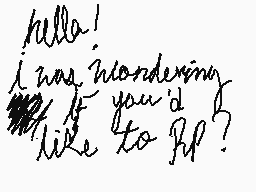 hello!
i was wondering
if you'd
like to RP?